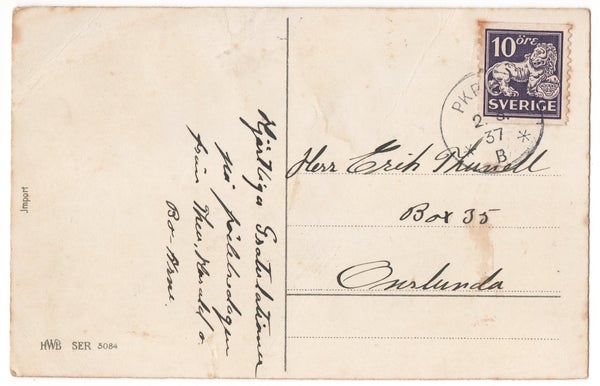 10 öre
SVERIGE
PKP
2.
37
* B *
Hjärtliga Gratulationer
på födelsedagen
från Thea, Harald o.
Bo-Arne.
Herr Erik Thunell
Box 35
Onslunda
Import
HWB SER 5084